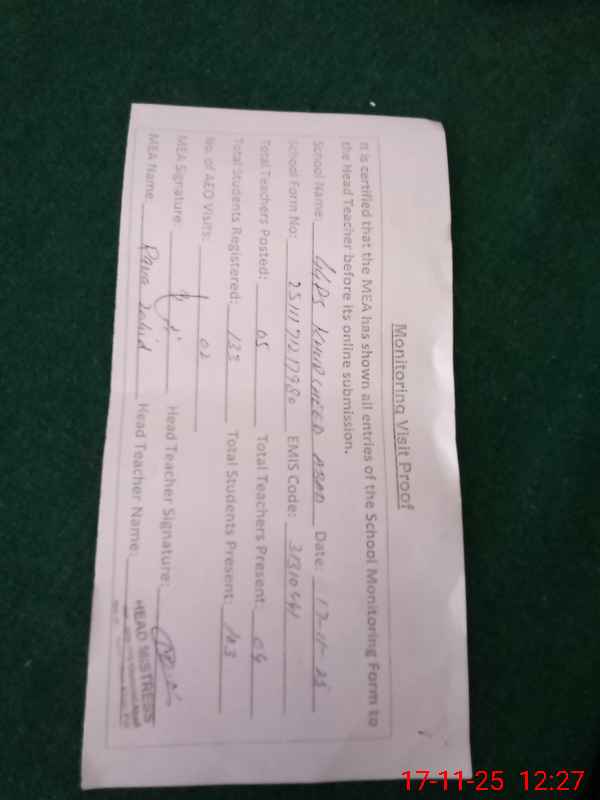 Monitoring Visit Proof
It is certified that the MEA has shown all entries of the School Monitoring Form to
the Head Teacher before its online submission.
School Name: GGPS KHURSHEED ABAD Date: 17-11-25
School Form No: EMIS Code:
Total Teachers Posted: 05 Total Teachers Present: 04
Total Students Registered: 135 Total Students Present: 123
No. of AEO Visits: 02
MEA Signature Head Teacher Signature:
MEA Name: Rana Zahid Head Teacher Name:
HEAD MISTRESS
17-11-25 12:27